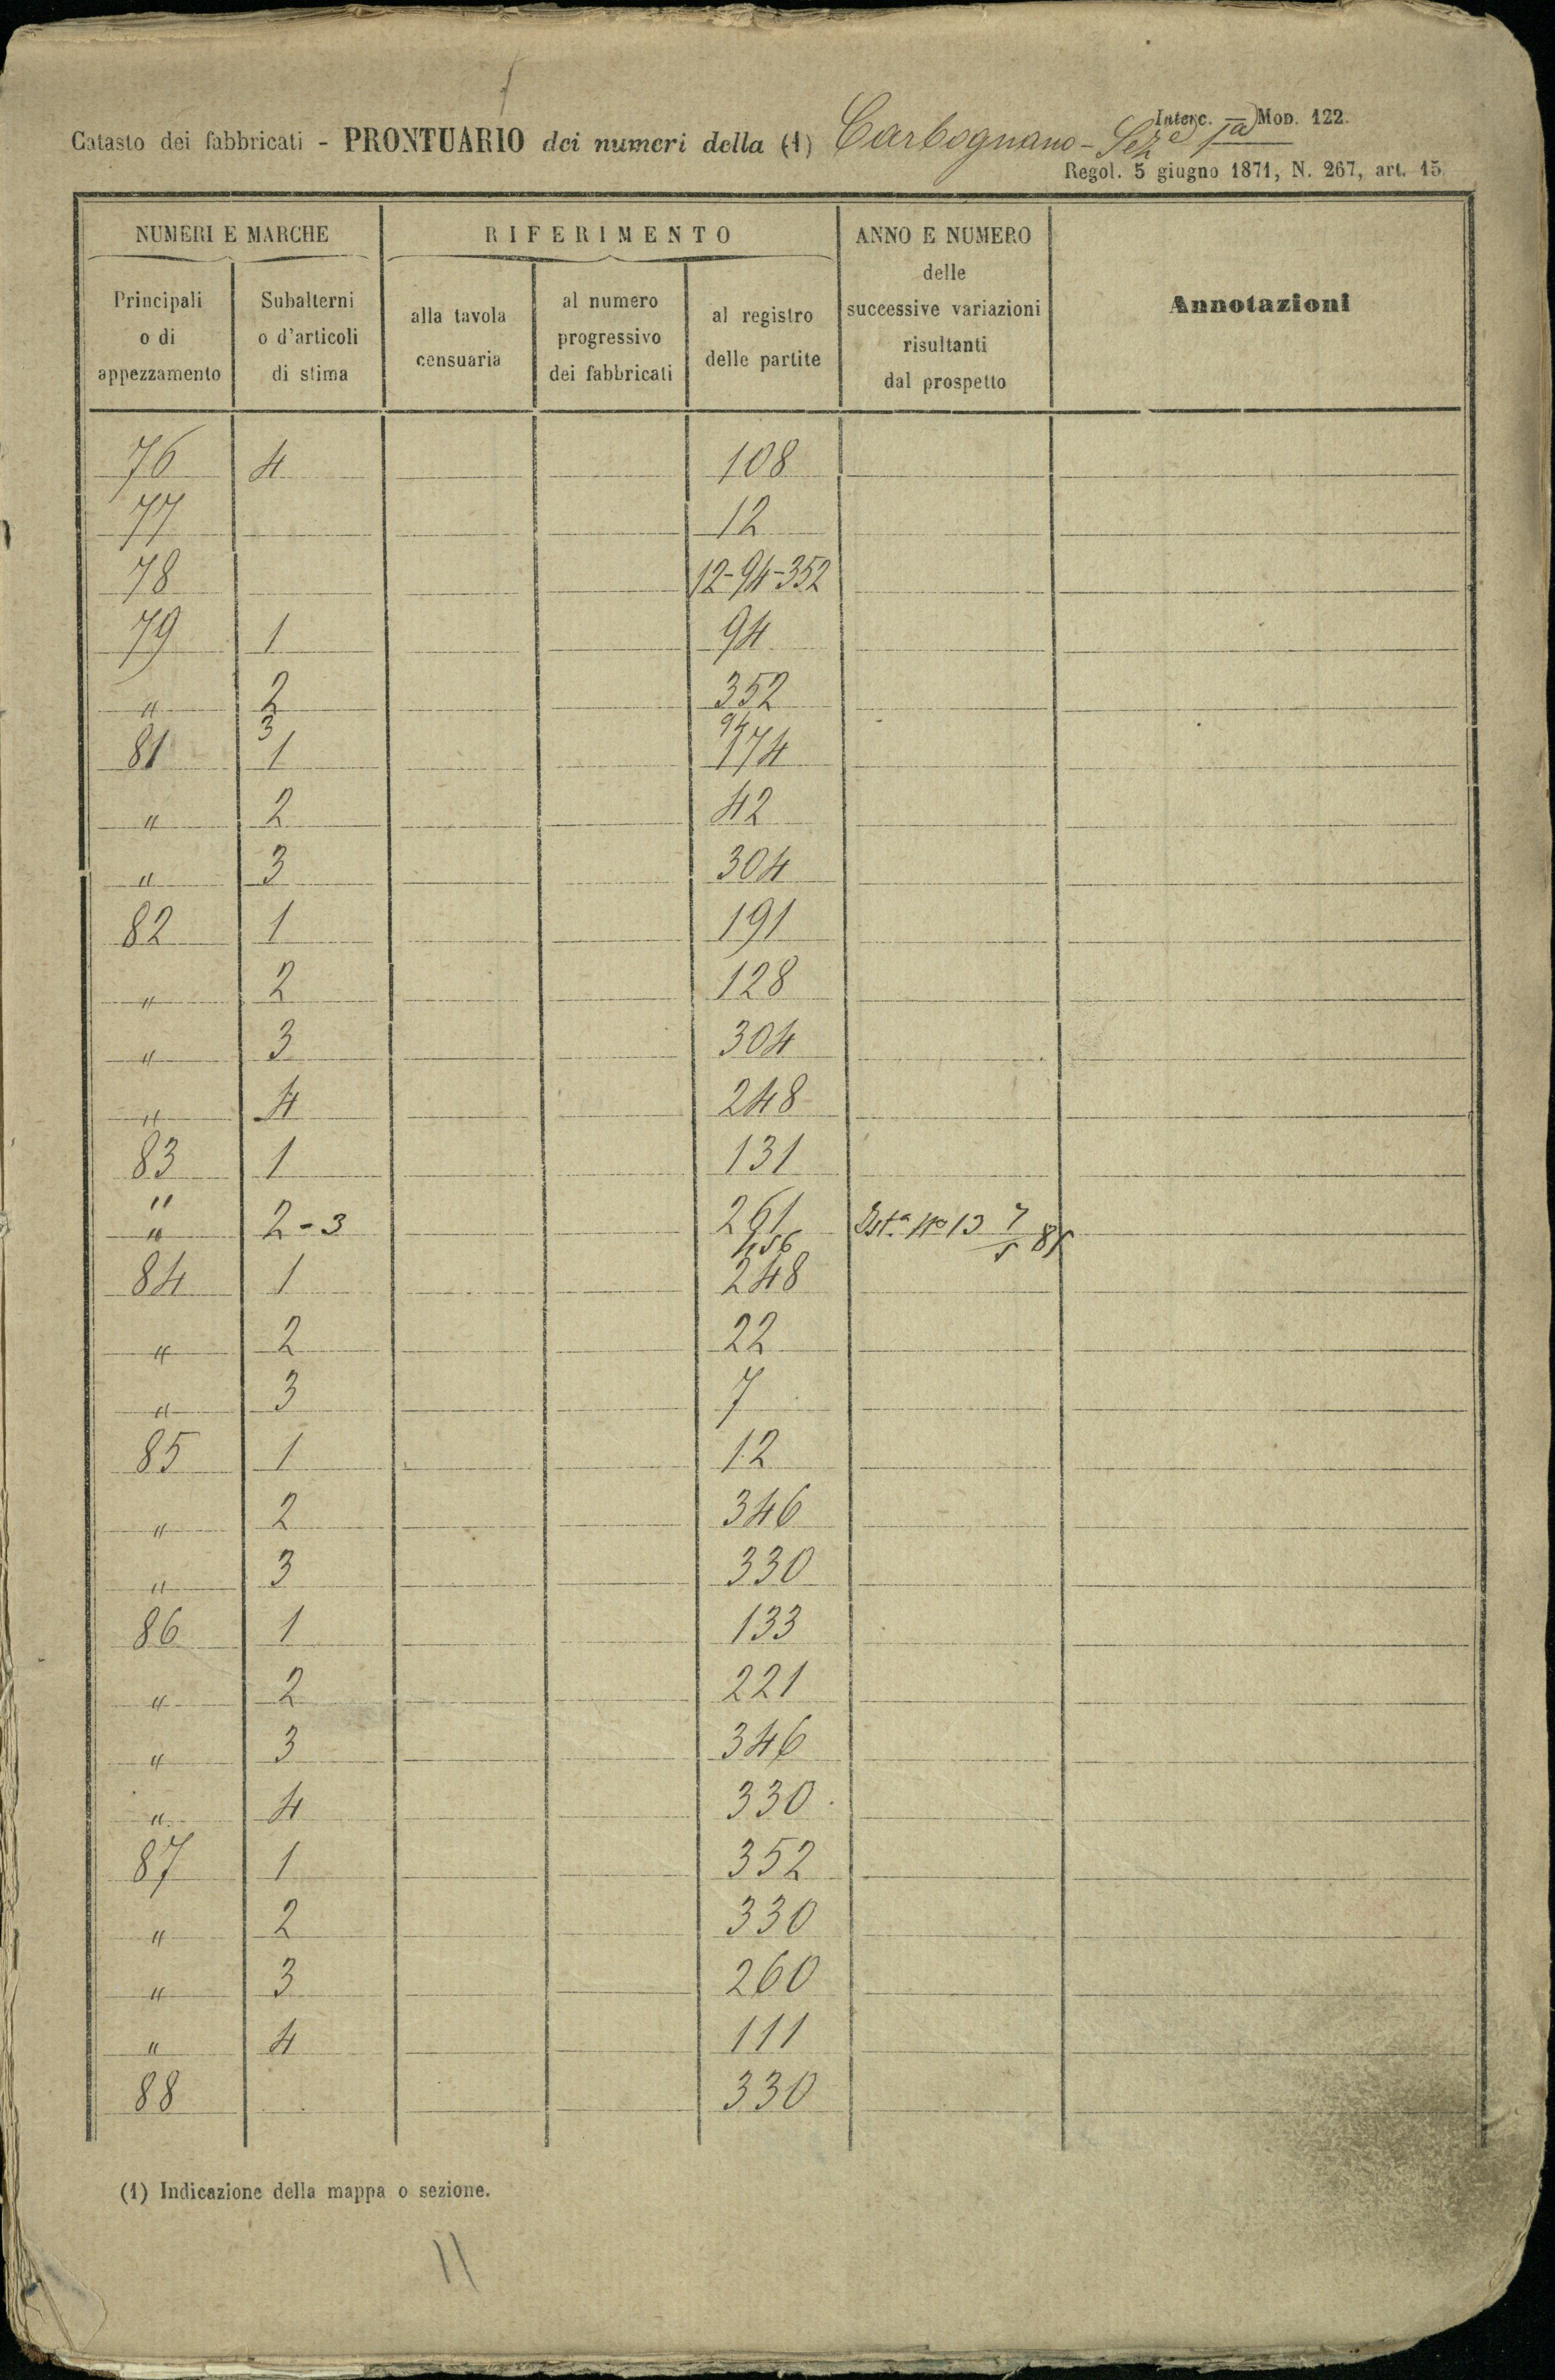 Interc. Mod. 122.
Catasto dei fabbricati - PRONTUARIO dei numeri della (1) Carbognano - Sez.e 1a
Regol. 5 giugno 1871, N. 267, art. 15.
NUMERI E MARCHE RIFERIMENTO ANNO E NUMERO delle successive variazioni risultanti dal prospetto Annotazioni
Principali o di appezzamento Subalterni o d'articoli di stima alla tavola censuaria al numero progressivo dei fabbricati al registro delle partite
76 4 108
77 12
78 12-94-352
79 1 94
" 2 352
3 94
81 1 174
" 2 42
" 3 304
82 1 191
" 2 128
" 3 304
" 4 248
83 1 131
"
" 2-3 261 No 13 7/5 81
84 1 248
" 2 22
" 3 7
85 1 12
" 2 346
" 3 330
86 1 133
" 2 221
" 3 346
" 4 330
87 1 352
" 2 330
" 3 260
" 4 111
88 330
(1) Indicazione della mappa o sezione.
11